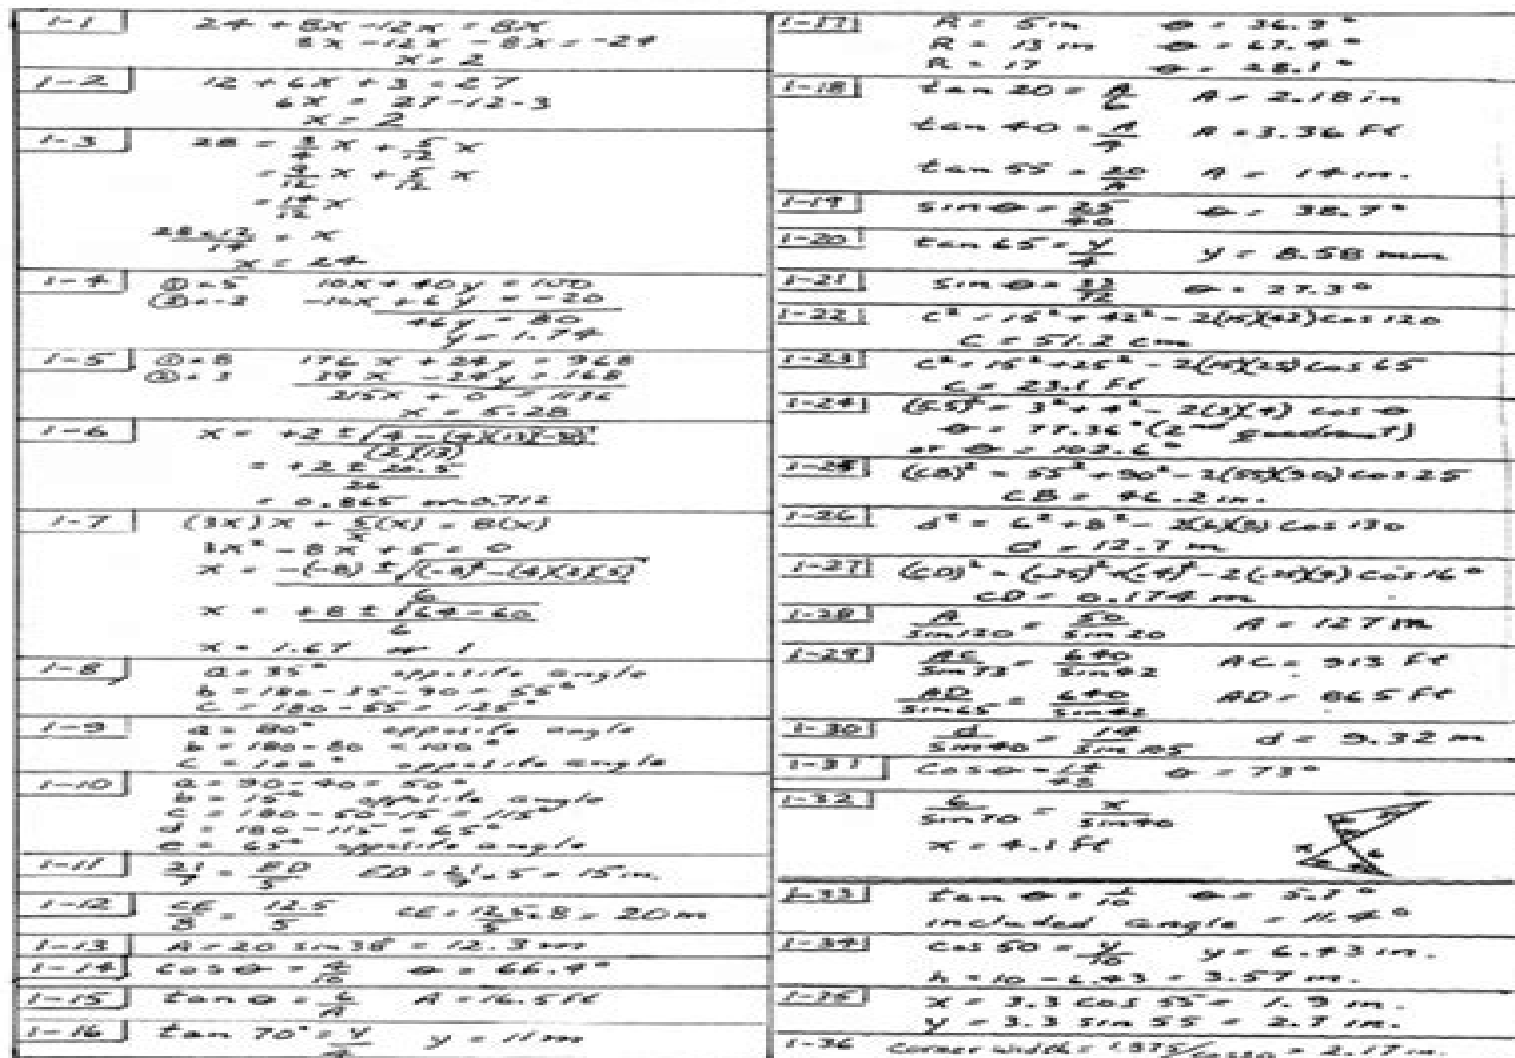 1-1 24 + 8x - 12x = 8x
8x - 12x - 8x = -24
x = 2
1-2 12 + 6x + 3 = 27
6x = 27 - 12 - 3
x = 2
1-3 28 = 3/4 x + 5/12 x
= 9/12 x + 5/12 x
= 14/12 x
28×12/14 = x
x = 24
1-4 ① × 5 10x + 40y = 100
② × -2 -10x + 6y = -20
46y = 80
y = 1.74
1-5 ① × 8 176x + 24y = 968
② × 3 39x - 24y = 168
215x + 0 = 1136
x = 5.28
1-6 x = +2 ± √4 - (4)(13)(-8)
(2)(13)
= +2 ± 20.5
26
= 0.865 or -0.712
1-7 (3x)x + 5/x (x) = 8(x)
3x² - 8x + 5 = 0
x = -(-8) ± √(-8)² - (4)(3)(5)
6
x = +8 ± √64 - 60
6
x = 1.67 or 1
1-8 a = 35° opposite angle
b = 180 - 35 - 90 = 55°
c = 180 - 55 = 125°
1-9 a = 80° opposite angle
b = 180 - 80 = 100°
c = 100° opposite angle
1-10 a = 90 - 40 = 50°
b = 15° opposite angle
c = 180 - 50 - 15 = 115°
d = 180 - 115 = 65°
e = 65° opposite angle
1-11 21/7 = ED/5 ED = 21/7 × 5 = 15 in.
1-12 CE/8 = 12.5/5 CE = 12.5/5 × 8 = 20 m
1-13 A = 20 sin 38° = 12.3 m
1-14 cos θ = 4/10 θ = 66.4°
1-15 tan θ = A = 16.5 ft
1-16 tan 70° = y/4 y = 11 m
1-17 R = 5 in θ = 36.9°
R = 13 in θ = 67.4°
R = 17 θ = 28.1°
1-18 tan 20 = A/6 A = 2.18 in
tan 40 = A/4 A = 3.36 ft
tan 55 = 20/A A = 14 in.
1-19 sin θ = 25/40 θ = 38.7°
1-20 tan 65 = y/4 y = 8.58 mm
1-21 sin θ = 33/72 θ = 27.3°
1-22 c² = 15² + 42² - 2(15)(42) cos 120
c = 51.2 cm
1-23 c² = 15² + 25² - 2(15)(25) cos 65
c = 23.1 ft
1-24 (5.5)² = 3² + 4² - 2(3)(4) cos θ
θ = 77.36° (2nd quadrant)
or θ = 102.6°
1-25 (CB)² = 55² + 90² - 2(55)(90) cos 25
CB = 46.2 in.
1-26 d² = 6² + 8² - 2(6)(8) cos 130
d = 12.7 m
1-27 (CD)² = (.25)² + (.4)² - 2(.25)(.4) cos 16°
CD = 0.174 m
1-28 A/sin 120 = 50/sin 20 A = 127 m
1-29 AC/sin 73 = 640/sin 42 AC = 915 ft
AD/sin 65 = 640/sin 42 AD = 865 ft
1-30 d/sin 40 = 14/sin 105 d = 9.32 m
1-31 cos θ = 14/48 θ = 73°
1-32 6/sin 70 = x/sin 40
x = 4.1 ft
x 6
1-33 tan θ = 1/10 θ = 5.7°
included angle = 11.4°
1-34 cos 50 = y/10 y = 6.43 in.
h = 10 - 6.43 = 3.57 in.
1-35 x = 3.3 cos 55 = 1.9 in.
y = 3.3 sin 55 = 2.7 in.
1-36 corner width = 1.875/cos 30 = 2.17 in.